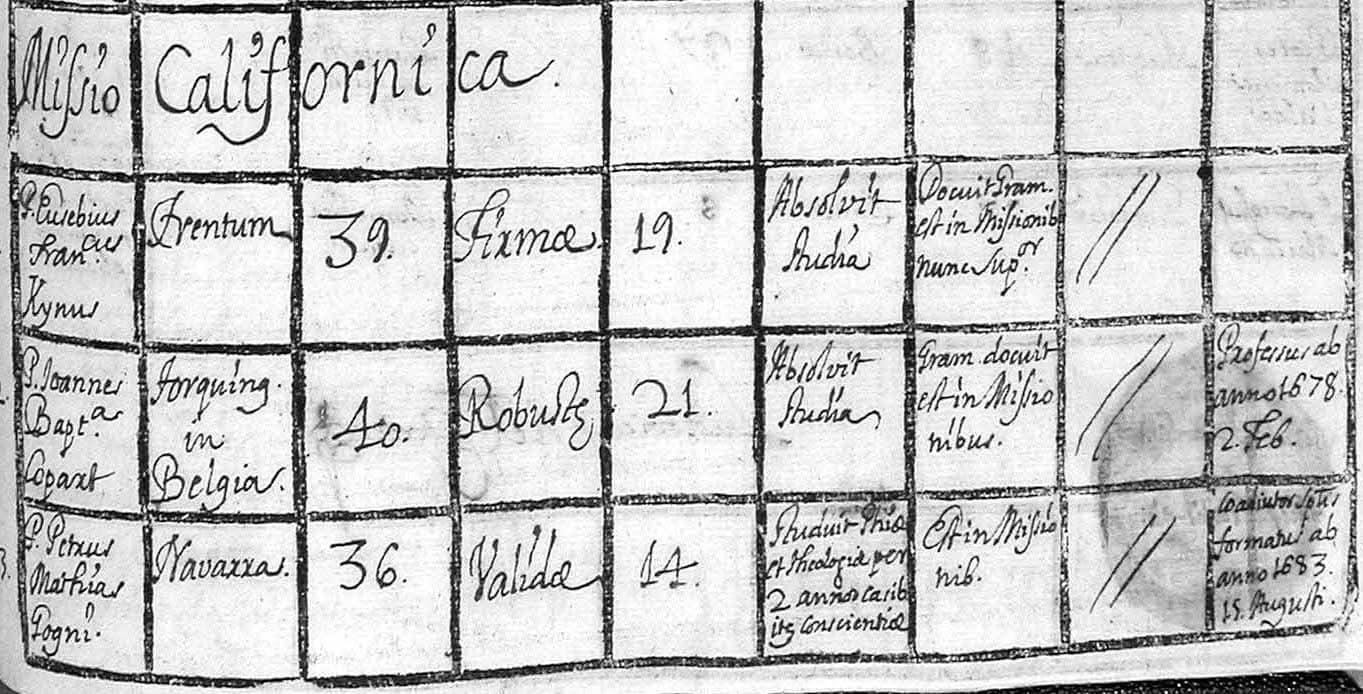 Missio Californica.
P. Eusebius
Fran.cus
Kynus
Trentum
39.
Firmæ
19.
Absolvit
studia
Docuit Gram.
est in Missionib
nunc sup.or
//
P. Joannes
Bapt.a
Copart
Torquing.
in
Belgia.
40.
Robustę
21.
Absolvit
studia
Gram. docuit
est in Missio
nibus.
//
Professus ab
anno 1678.
2. Feb.
P. Petrus
Mathias
Gogni.
Navarra.
36.
Validæ
14.
Studuit
et theologiæ per
2 annos casib
conscientiæ
Est in Missio
nib.
//
Coadiutor
formatus ab
anno 1683.
15. Augusti.